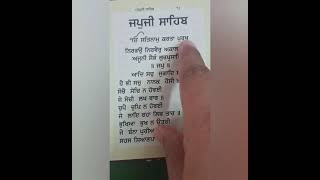 ਜਪੁਜੀ ਸਾਹਿਬ
ੴ ਸਤਿਨਾਮੁ ਕਰਤਾ ਪੁਰਖੁ
ਨਿਰਭਉ ਨਿਰਵੈਰੁ ਅਕਾਲ
ਅਜੂਨੀ ਸੈਭੰ ਗੁਰਪ੍ਰਸਾਦਿ
॥ ਜਪੁ ॥
ਆਦਿ ਸਚੁ ਜੁਗਾਦਿ
ਹੈ ਭੀ ਸਚੁ ਨਾਨਕ ਹੋਸੀ
ਸੋਚੈ ਸੋਚਿ ਨ ਹੋਵਈ
ਜੇ ਸੋਚੀ ਲਖ ਵਾਰ
ਚੁਪੈ ਚੁਪਿ ਨ ਹੋਵਈ
ਜੇ ਲਾਇ ਰਹਾ ਲਿਵ ਤਾਰ
ਭੁਖਿਆ ਭੁਖ ਨ ਉਤਰੀ
ਜੇ ਬੰਨਾ ਪੁਰੀਆ
ਸਹਸ ਸਿਆਣਪਾ